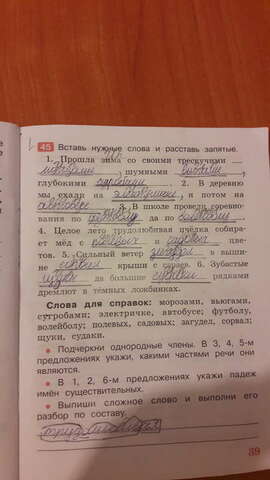 45 Вставь нужные слова и расставь запятые.
1. Прошла зима со своими трескучими
морозами, шумными вьюгами,
глубокими сугробами. 2. В деревню
мы ехали на электричке, а потом на
автобусе. 3. В школе провели соревно-
вания по футболу да по волейболу.
4. Целое лето трудолюбивая пчёлка собира-
ет мёд с полевых и садовых цве-
тов. 5. Сильный ветер загудел в выши-
не сорвал крыши с сараев. 6. Зубастые
щуки да большие судаки рядками
дремлют в тёмных ложбинках.
Слова для справок: морозами, вьюгами,
сугробами; электричке, автобусе; футболу,
волейболу; полевых, садовых; загудел, сорвал;
щуки, судаки.
• Подчеркни однородные члены. В 3, 4, 5-м
предложениях укажи, какими частями речи они
являются.
• В 1, 2, 6-м предложениях укажи падеж
имён существительных.
• Выпиши сложное слово и выполни его
разбор по составу.
трудолюбивая
39